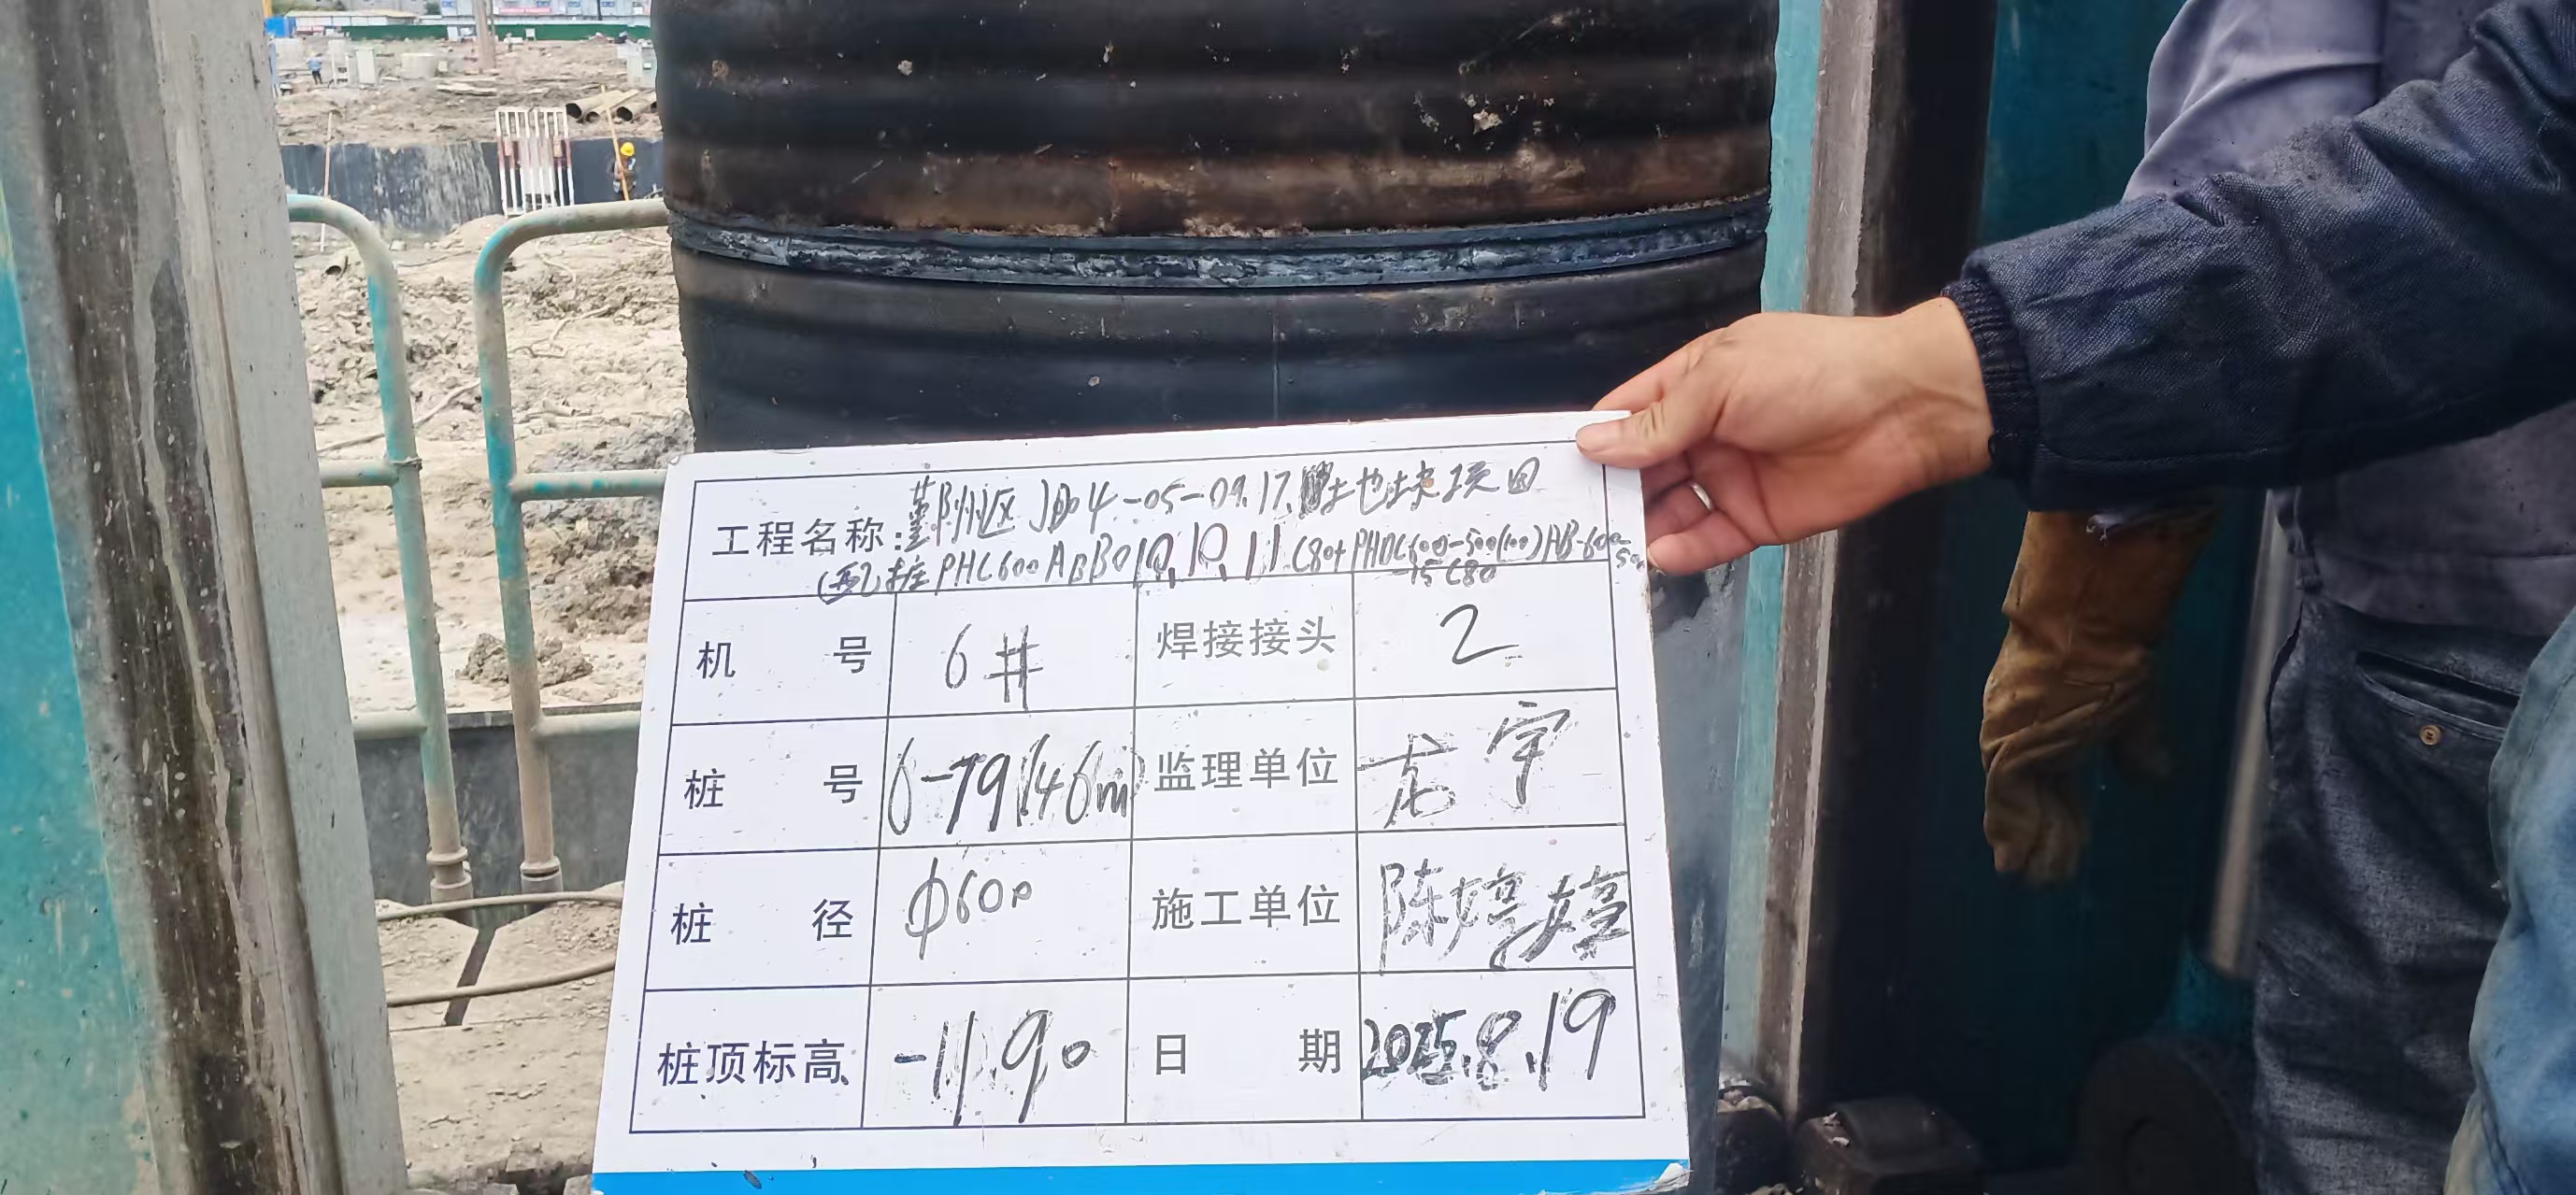 工程名称:鄞州区JD04-05-09.17.地块项目
(配)桩PHC600AB130 10,10,11 C80+PHDC600-500(100)AB-600/500
-15 C80
机 号 6# 焊接接头 2
桩 号 6-79(46m) 监理单位 宇
桩 径 φ600 施工单位 陈婷婷
桩顶标高 -11.90 日 期 2025.8.19